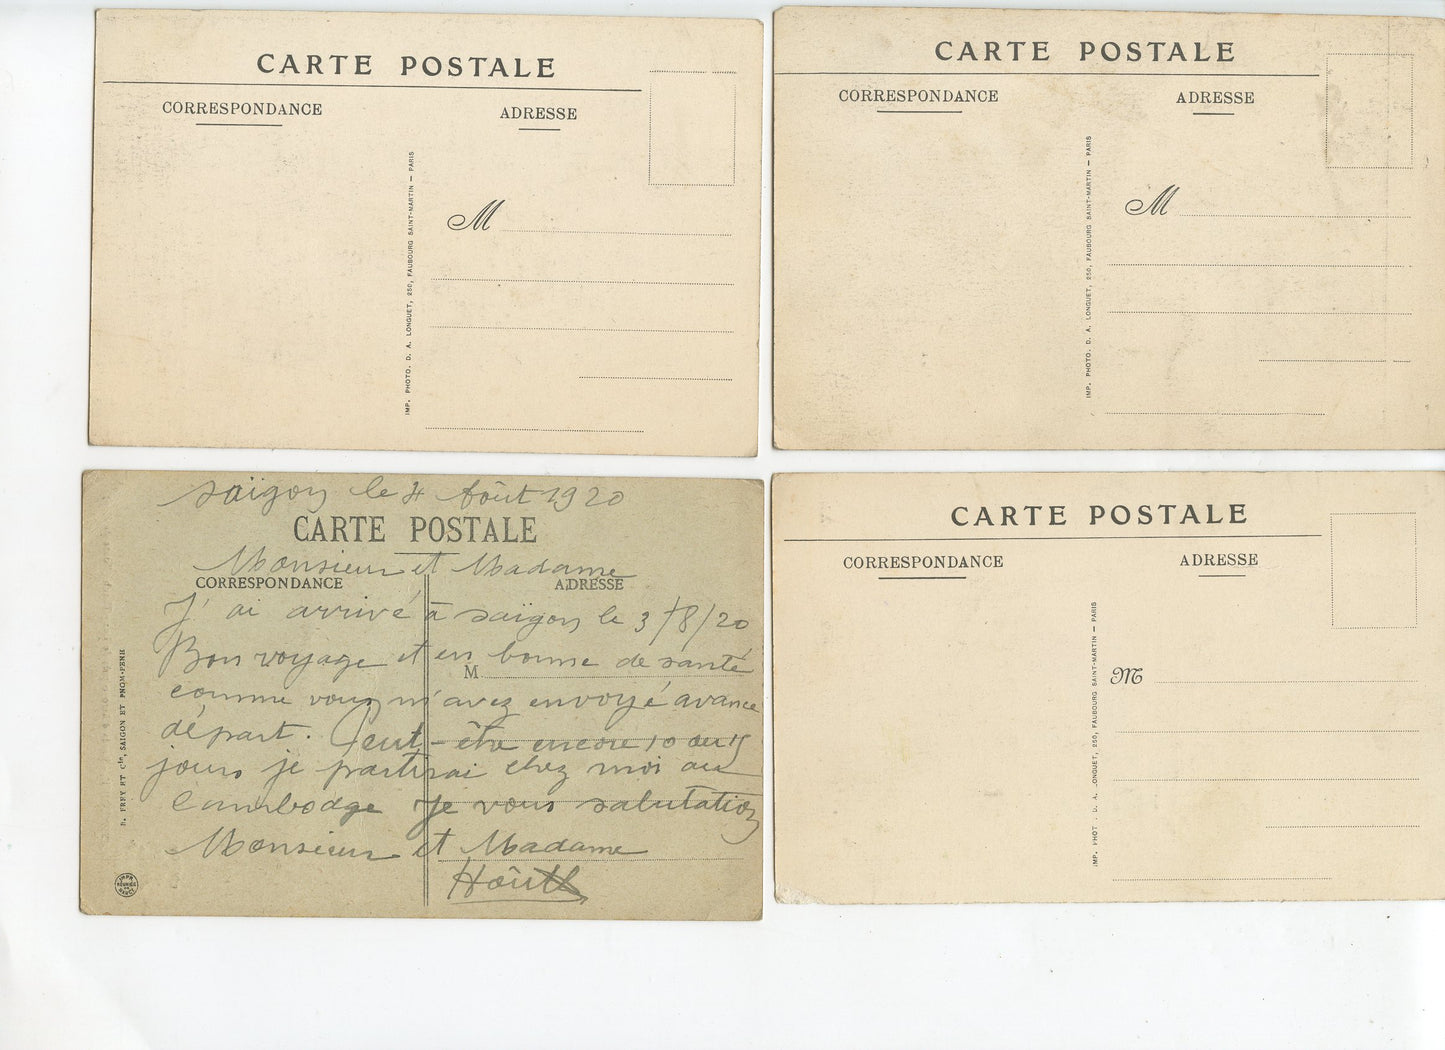 CARTE POSTALE
CORRESPONDANCE
ADRESSE
M
IMP. PHOTO. D. A. LONGUET, 250, FAUBOURG SAINT-MARTIN — PARIS
CARTE POSTALE
CORRESPONDANCE
ADRESSE
M
IMP. PHOTO. D. A. LONGUET, 250, FAUBOURG SAINT-MARTIN — PARIS
Saïgon le 4 Août 1920
CARTE POSTALE
Monsieur et Madame
CORRESPONDANCE
ADRESSE
J'ai arrivé à Saïgon le 3/8/20
Bon voyage et en bonne de santé
M.
comme vous m'avez envoyé avance
départ. Peut-être encore 10 ou 15
jours je partirai chez moi au
Cambodge Je vous salutation
Monsieur et Madame
Hôuth
FREY ET Cie, SAIGON ET PNOM-PENH
IMPR
RÉUNIES
DE
NANCY
CARTE POSTALE
CORRESPONDANCE
ADRESSE
M
IMP. PHOT . D. A. .ONGUET, 250, FAUBOURG SAINT-MARTIN — PARIS